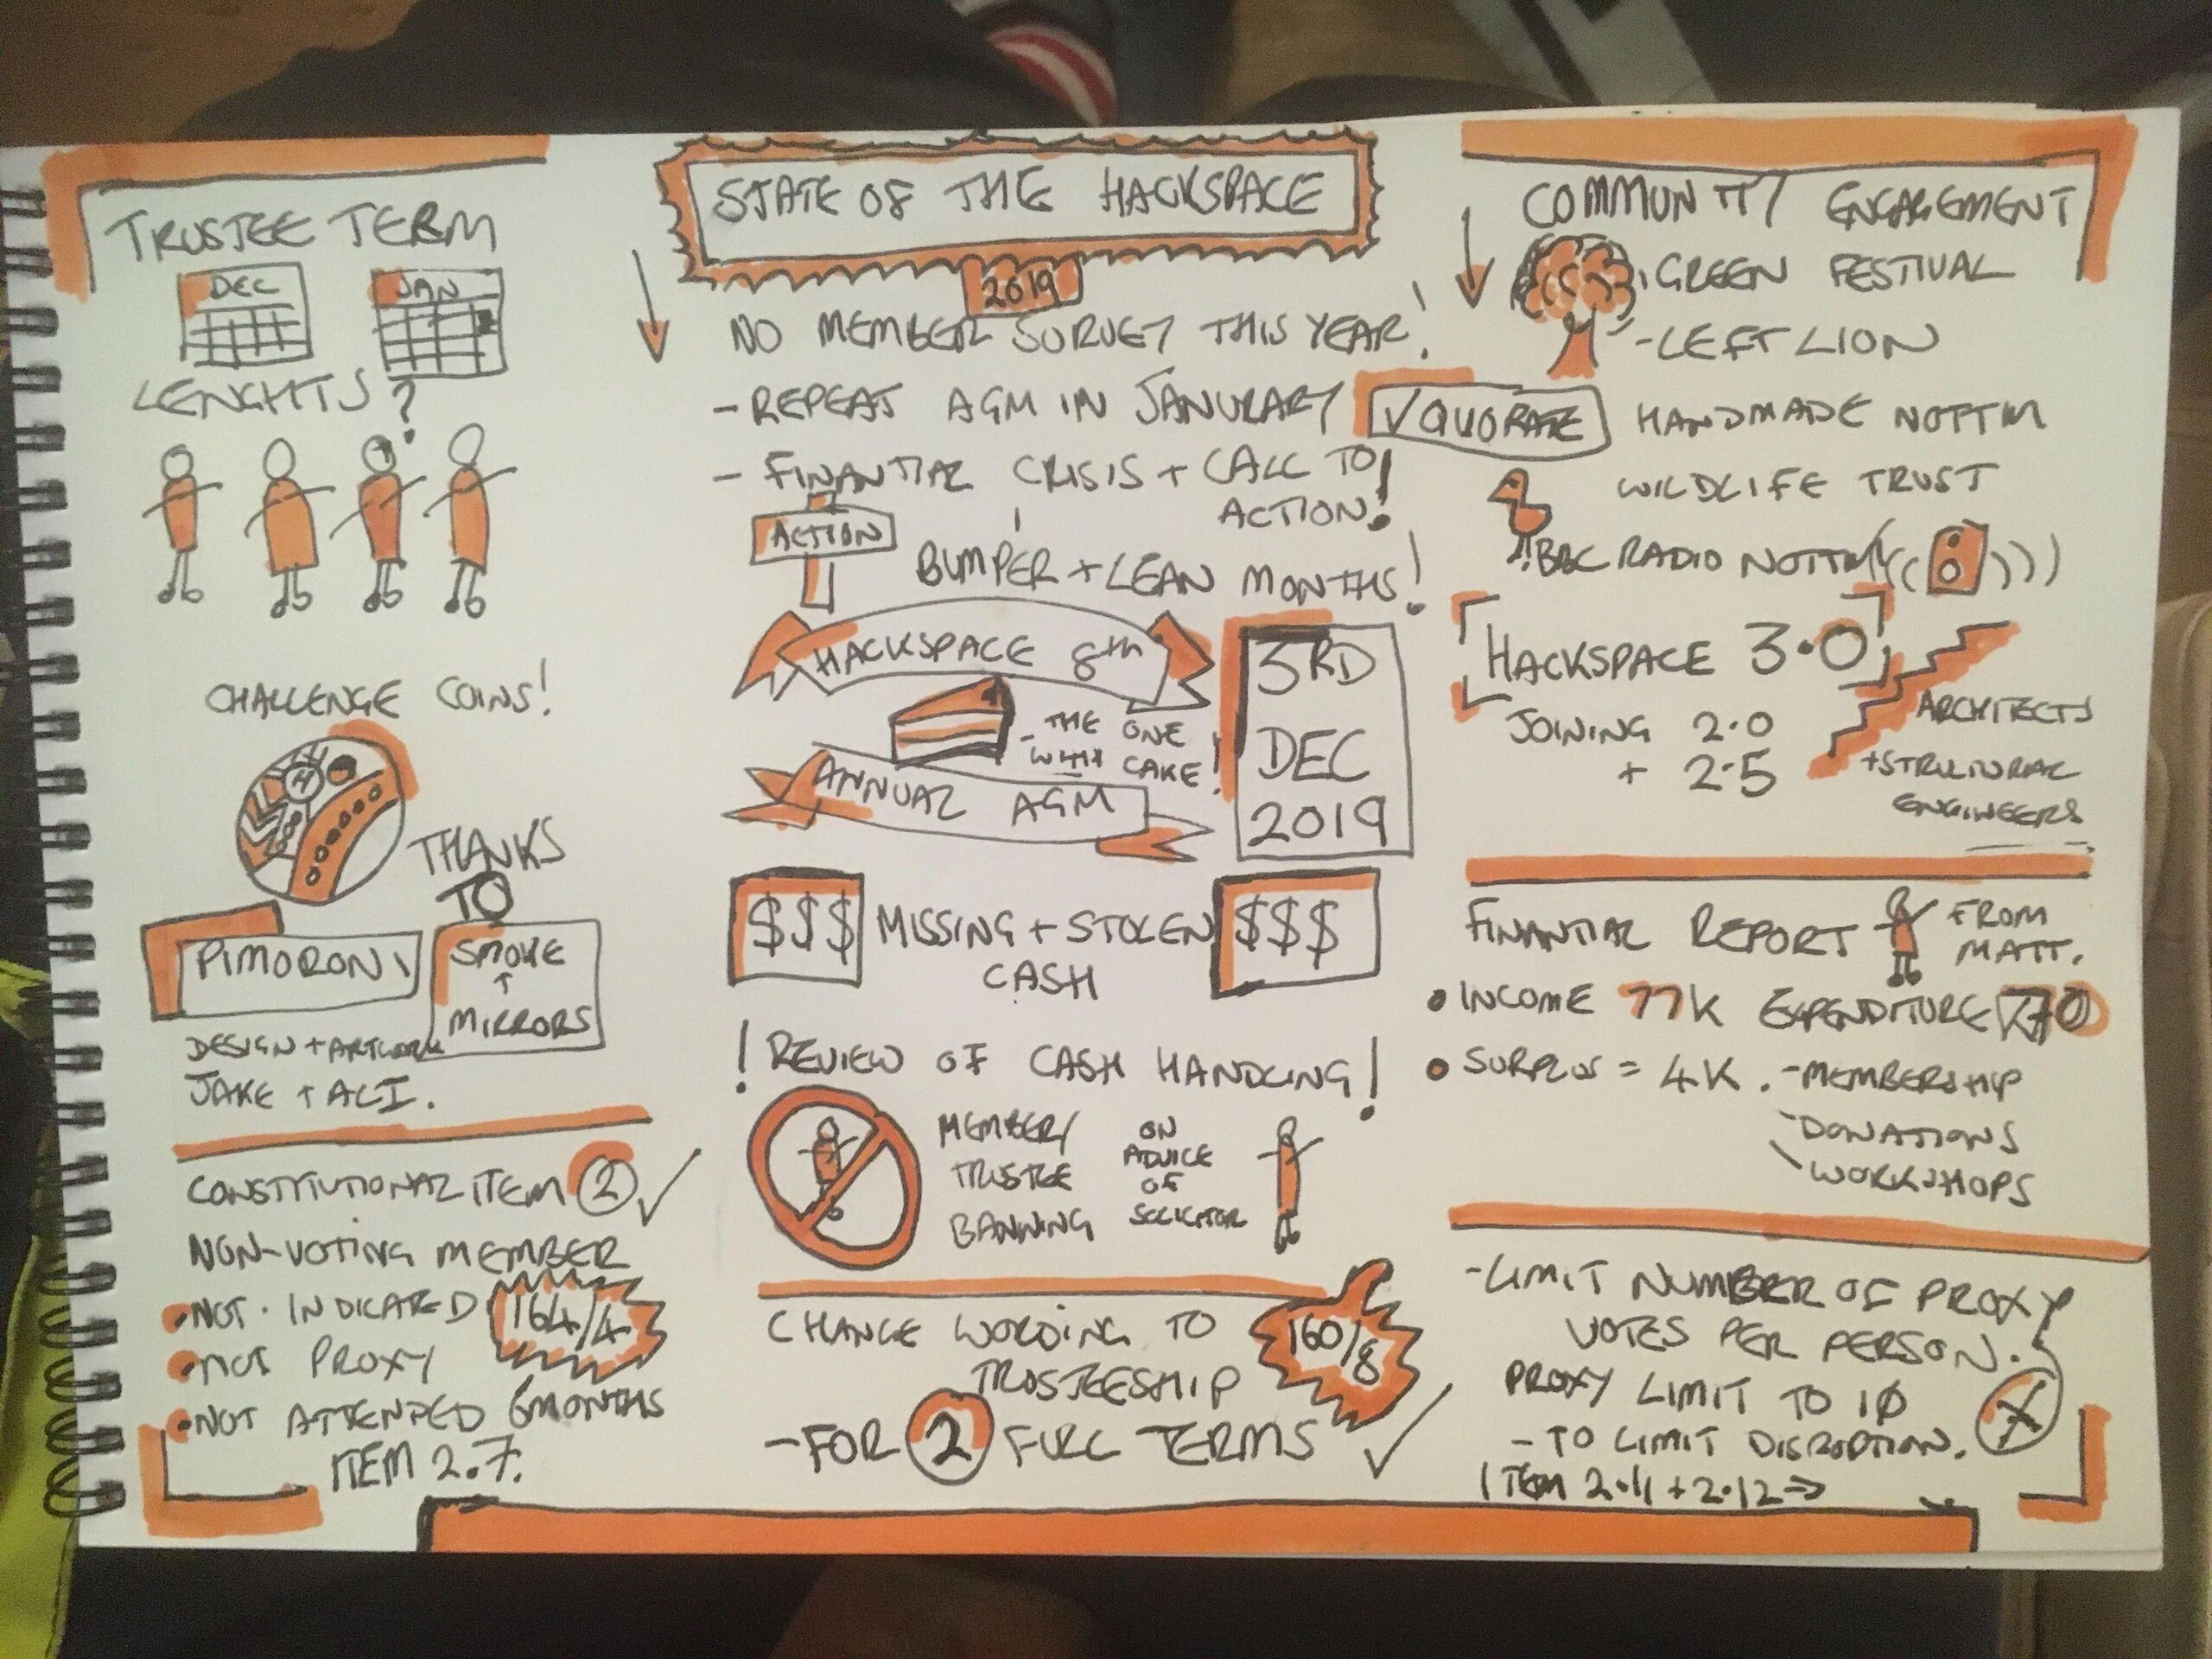 TRUSTEE TERM
DEC
JAN
LENGHTS?
CHALLENGE COINS!
THANKS
TO
PIMORONI
SMOKE
+
MIRRORS
DESIGN + ARTWORK
JAKE + ALI.
CONSTITUTIONAL ITEM 2 ✓
NON-VOTING MEMBER
• NOT INDICATED
164/4
• NOT PROXY
• NOT ATTENDED 6 MONTHS
ITEM 2.7.
STATE OF THE HACKSPACE
2019
NO MEMBER SURVEY THIS YEAR!
- REPEAT AGM IN JANURARY
✓ QUORATE
- FINANTIAL CRISIS + CALL TO
ACTION!
ACTION
BUMPER + LEAN MONTHS!
HACKSPACE 8th
- THE ONE
WITH CAKE!
ANNUAL AGM
3RD
DEC
2019
$$$ MISSING + STOLEN $$$
CASH
! REVIEW OF CASH HANDLING!
MEMBER/
TRUSTEE
BANNING
ON
ADVICE
OF
SOLICITOR
CHANGE WORDING TO
TRUSTEESHIP
160/8
- FOR 2 FULL TERMS ✓
COMMUNITY ENGAGEMENT
GREEN FESTIVAL
- LEFT LION
HANDMADE NOTTM
WILDLIFE TRUST
BBC RADIO NOTTM
HACKSPACE 3.0
JOINING 2.0
+ 2.5
ARCHITECTS
+ STRUCTURAL
ENGINEERS
FINANTIAL REPORT
FROM
MATT.
• INCOME 77K EXPENDITURE
• SURPLUS = 4K. - MEMBERSHIP
- DONATIONS
WORKSHOPS
- LIMIT NUMBER OF PROXY
VOTES PER PERSON.
PROXY LIMIT TO 10
- TO LIMIT DISRUPTION.
ITEM 2.11 + 2.12 →